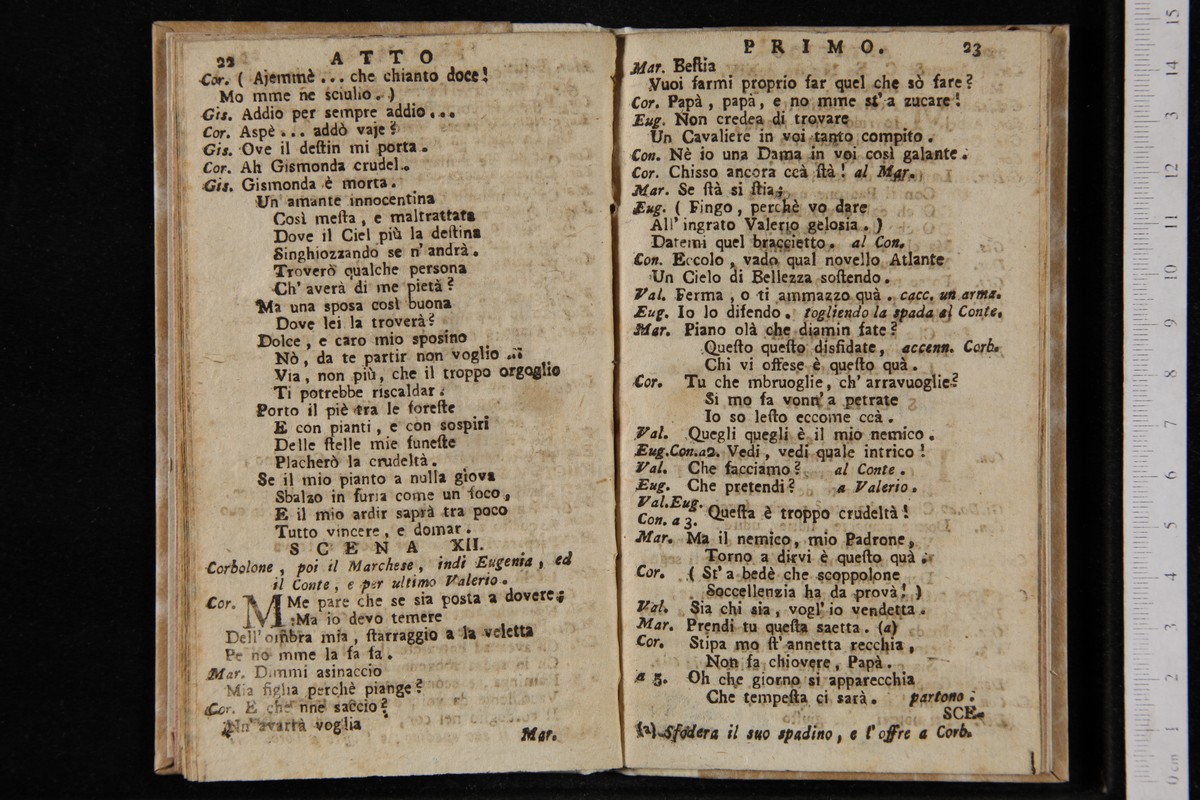 22 ATTO
Cor. ( Ajemmè ... che chianto doce!
Mo mme ne sciulio. )
Gis. Addio per sempre addio...
Cor. Aspè ... addò vaje?
Gis. Ove il destin mi porta.
Cor. Ah Gismonda crudel.
Gis. Gismonda è morta.
Un' amante innocentina
Così mesta, e maltrattata
Dove il Ciel più la destina
Singhiozzando se n' andrà.
Troverò qualche persona
Ch' averà di me pietà?
Ma una sposa così buona
Dove lei la troverà?
Dolce, e caro mio sposino
Nò, da te partir non voglio ...
Via, non più, che il troppo orgoglio
Ti potrebbe riscaldar.
Porto il piè tra le foreste
E con pianti, e con sospiri
Delle stelle mie funeste
Placherò la crudeltà.
Se il mio pianto a nulla giova
Sbalzo in furia come un foco,
E il mio ardir saprà tra poco
Tutto vincere, e domar.
SCENA XII.
Corbolone, poi il Marchese, indi Eugenia, ed
il Conte, e per ultimo Valerio.
Cor. MMe pare che se sia posta a dovere;
Ma io devo temere
Dell' ombra mia, starraggio a la veletta
Pe no mme la fa fa.
Mar. Dimmi asinaccio
Mia figlia perchè piange?
Cor. E che nne saccio?
Nn' avarrà voglia
Mar.
PRIMO. 23
Mar. Bestia
Vuoi farmi proprio far quel che sò fare?
Cor. Papà, papà, e no mme st' a zucare!
Eug. Non credea di trovare
Un Cavaliere in voi tanto compito.
Con. Nè io una Dama in voi così galante.
Cor. Chisso ancora ccà stà! al Mar.
Mar. Se stà si stia;
Eug. ( Fingo, perchè vo dare
All' ingrato Valerio gelosia. )
Datemi quel braccietto. al Con.
Con. Eccolo, vado qual novello Atlante
Un Cielo di Bellezza sostendo.
Val. Ferma, o ti ammazzo quà. cacc. un arma.
Eug. Io lo difendo. togliendo la spada al Conte.
Mar. Piano olà che diamin fate?
Questo questo disfidate, accenn. Corb.
Chi vi offese è questo quà.
Cor. Tu che mbruoglie, ch' arravuoglie?
Si mo fa vonn' a petrate
Io so lesto eccome ccà.
Val. Quegli quegli è il mio nemico.
Eug.Con.a2. Vedi, vedi quale intrico!
Val. Che facciamo? al Conte.
Eug. Che pretendi? a Valerio.
Val.Eug.
Con. a 3. Questa è troppo crudeltà!
Mar. Ma il nemico, mio Padrone,
Torno a dirvi è questo quà.
Cor. ( St' a bedè che scoppolone
Soccellenzia ha da provà! )
Val. Sia chi sia, vogl' io vendetta.
Mar. Prendi tu questa saetta. (a)
Cor. Stipa mo st' annetta recchia,
Non fa chiovere, Papà.
a 5. Oh che giorno si apparecchia
Che tempesta ci sarà. partono.
SCE-
(a) Sfodera il suo spadino, e l'offre a Corb.
0 cm 1 2 3 4 5 6 7 8 9 10 11 12 13 14 15